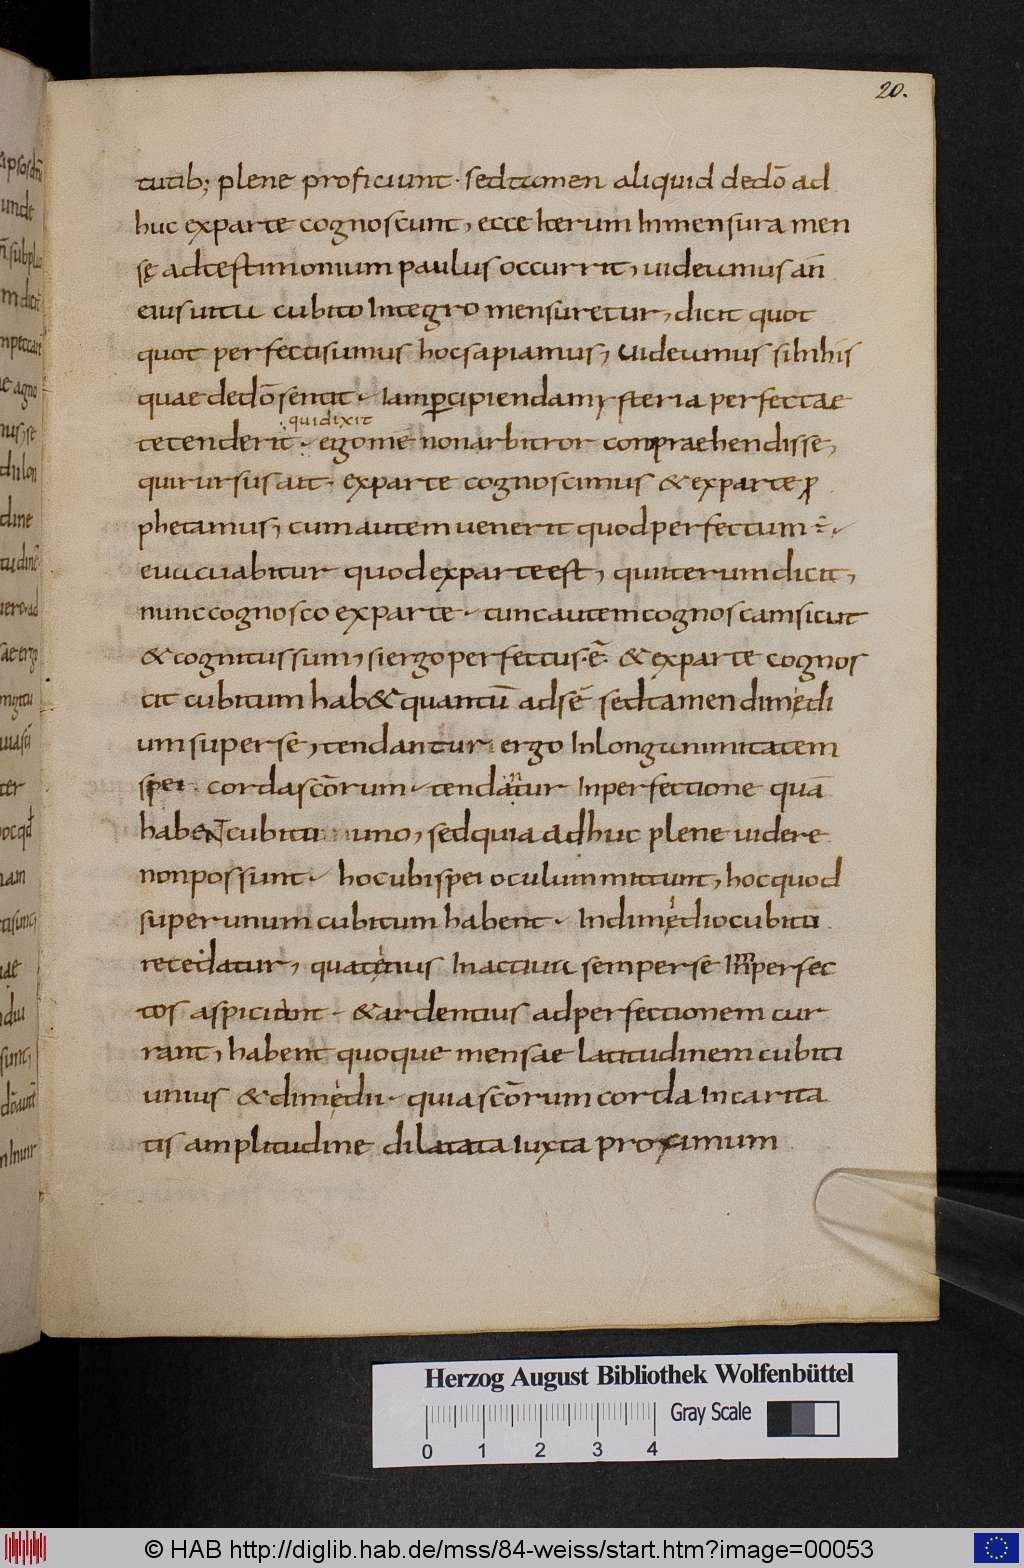 20.
tutib; plene proficiunt· sed tamen aliquid de dõ ad
huc ex parte cognoscunt, ecce iterum in mensura men
sę ad testimonium paulus occurrit, uideamus añ
eius uita cubito integro mensuretur, dicit quot
quot perfecti sumus hoc sapiamus, uideamus si hi his
quae de dõ sentit· iam percipienda mysteria perfectae
quidixit
tetenderit· ego me non arbitror conpraehendisse,
qui rursus ait· ex parte cognoscimus & ex parte pro
phetamus, cum autem uenerit quod perfectum ÷·
euacuabitur quod ex parte est, qui iterum dicit,
nunc cognosco ex parte· tunc autem cognoscam sicut
& cognitus sum, si ergo perfectus·ē· & ex parte cognos
cit cubitum hab& quantū ad sē sed tamen dimedi
um super se, tendantur ergo in longanimitatem
spei· corda scõrum· tendantur in perfectione quā
habent cubitu uno, sed quia adhuc plene uidere
non possunt· hoc ubi spei oculum mittunt, hoc quod
super unum cubitum habent· in dimedio cubitū
recedatur, quatenus in actiua semper se inperfec
tos aspiciunt· & ardentius ad perfectionem cur
rant, habent quoque mensae latitudinem cubiti
unius & dimedii· quia scõrum corda in carita
tis amplitudine dilatata iuxta proximum
Herzog August Bibliothek Wolfenbüttel
Gray Scale
0 1 2 3 4
© HAB http://diglib.hab.de/mss/84-weiss/start.htm?image=00053